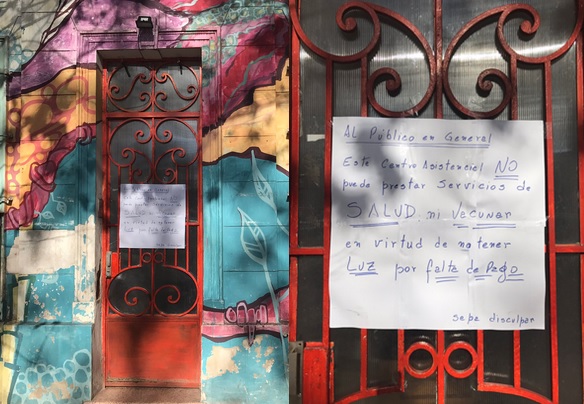 AL Público en General
Este Centro Asistencial NO
puede prestar Servicios de
SALUD ni Vecunar
en virtud de no tener
LUZ por falta de Pago
sepa disculpar